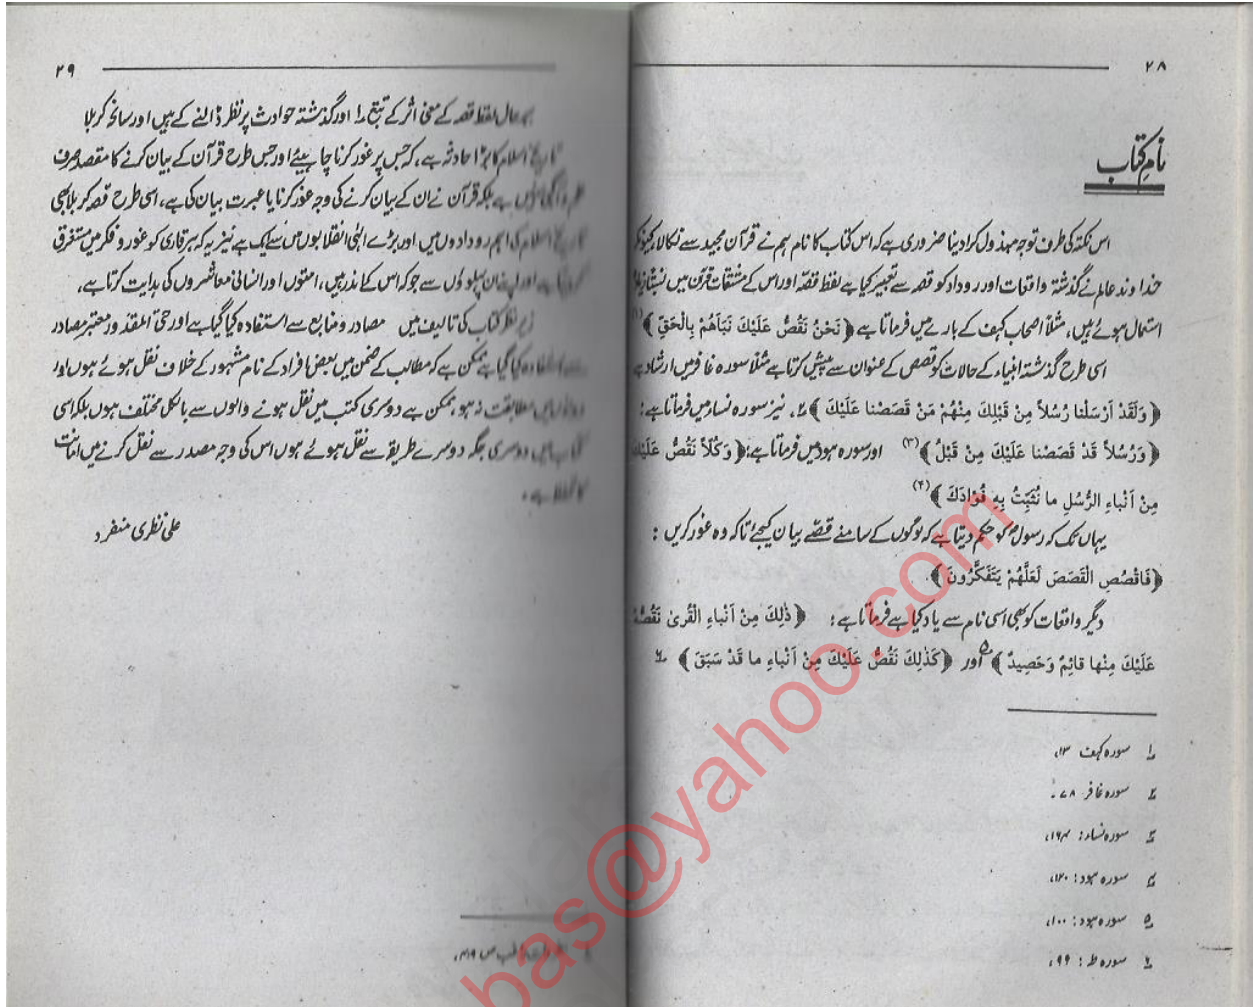 ۲۸
نامِ کتاب
اس نکتہ کی طرف توجہ مبذول کرا دینا ضروری ہے کہ اس کتاب کا نام ہم نے قرآن مجید سے نکالا، کیونکہ
خداوند عالم نے گذشتہ واقعات اور روداد کو قصہ سے تعبیر کیا ہے لفظ قصّہ اور اس کے مشتقات قرآن میں نسبتاً زیادہ
استمال ہوئے ہیں، مثلاً اصحاب کہف کے بارے میں فرماتا ہے ﴿نَحْنُ نَقُصُّ عَلَيْكَ نَبَأَهُمْ بِالْحَقِّ﴾ (۱)
اسی طرح گذشتہ انبیاء کے حالات کو قصص کے عنوان سے پیش کرتا ہے مثلاً سورہ غافر میں ارشاد ہے
﴿وَلَقَدْ اَرْسَلْنا رُسُلاً مِنْ قَبْلِكَ مِنْهُمْ مَنْ قَصَصْنا عَلَيْكَ﴾ ۲، نیز سورہ نساء میں فرماتا ہے:
﴿وَرُسُلاً قَدْ قَصَصْنا عَلَيْكَ مِنْ قَبْلُ﴾ (۳) اور سورہ ہود میں فرماتا ہے: ﴿وَكُلاًّ نَقُصُّ عَلَيْكَ
مِنْ اَنْباءِ الرُّسُلِ ما نُثَبِّتُ بِهِ فُؤادَكَ﴾ (۴)
یہاں تک کہ رسولؐ کو حکم دیتا ہے کہ لوگوں کے سامنے قصّے بیان کیجئے تاکہ وہ غور کریں :
﴿فَاقْصُصِ الْقَصَصَ لَعَلَّهُمْ يَتَفَكَّرُونَ﴾.
دیگر واقعات کو بھی اسی نام سے یاد کیا ہے فرماتا ہے: ﴿ذٰلِكَ مِنْ اَنْباءِ الْقُرىٰ نَقُصُّهُ
عَلَيْكَ مِنْها قائِمٌ وَحَصِيدٌ﴾ ۵ اور ﴿كَذٰلِكَ نَقُصُّ عَلَيْكَ مِنْ اَنْباءِ ما قَدْ سَبَقَ﴾ ۶
۱ سورہ کہف ۱۳،
۲ سورہ غافر ۷۸۔
۳ سورہ نساء: ۱۶۴،
۴ سورہ ہود: ۱۲۰،
۵ سورہ ہود: ۱۰۰،
۶ سورہ طہٰ: ۹۹،
۲۹
بہرحال لفظ قصہ کے معنی اثر کے تتبع اور گذشتہ حوادث پر نظر ڈالنے کے ہیں اور سانحۂ کربلا
تاریخ اسلام کا بڑا حادثہ ہے، کہ جس پر غور کرنا چاہیئے اور جس طرح قرآن کے بیان کرنے کا مقصد صرف
نہیں ہے بلکہ قرآن نے ان کے بیان کرنے کی وجہ غور کرنا یا عبرت بیان کی ہے، اسی طرح قصہ کربلا بھی
تاریخ اسلام کی اہم رودادوں میں اور بڑے الٰہی انقلابوں میں سے ایک ہے نیز یہ کہ ہر قاری کو غور و فکر میں مستغرق
کر دیتا ہے اور اپنے ان پہلوؤں سے جو کہ اس کے اندر ہیں، امتوں اور انسانی معاشروں کی ہدایت کرتا ہے،
زیر نظر کتاب کی تالیف میں مصادر و منابع سے استفادہ کیا گیا ہے اور حتیّ المقدور معتبر مصادر
سے استفادہ کیا گیا ہے ممکن ہے کہ مطالب کے ضمن میں بعض افراد کے نام مشہور کے خلاف نقل ہوئے ہوں اور
مطابقت نہ ہو، ممکن ہے دوسری کتب میں نقل ہونے والوں سے بالکل مختلف ہوں بلکہ اسی
کتاب میں دوسری جگہ دوسرے طریقہ سے نقل ہوئے ہوں اس کی وجہ مصدر سے نقل کرنے میں امانت
کا لحاظ ہے،
علی نظری منفرد
bas@yahoo.com